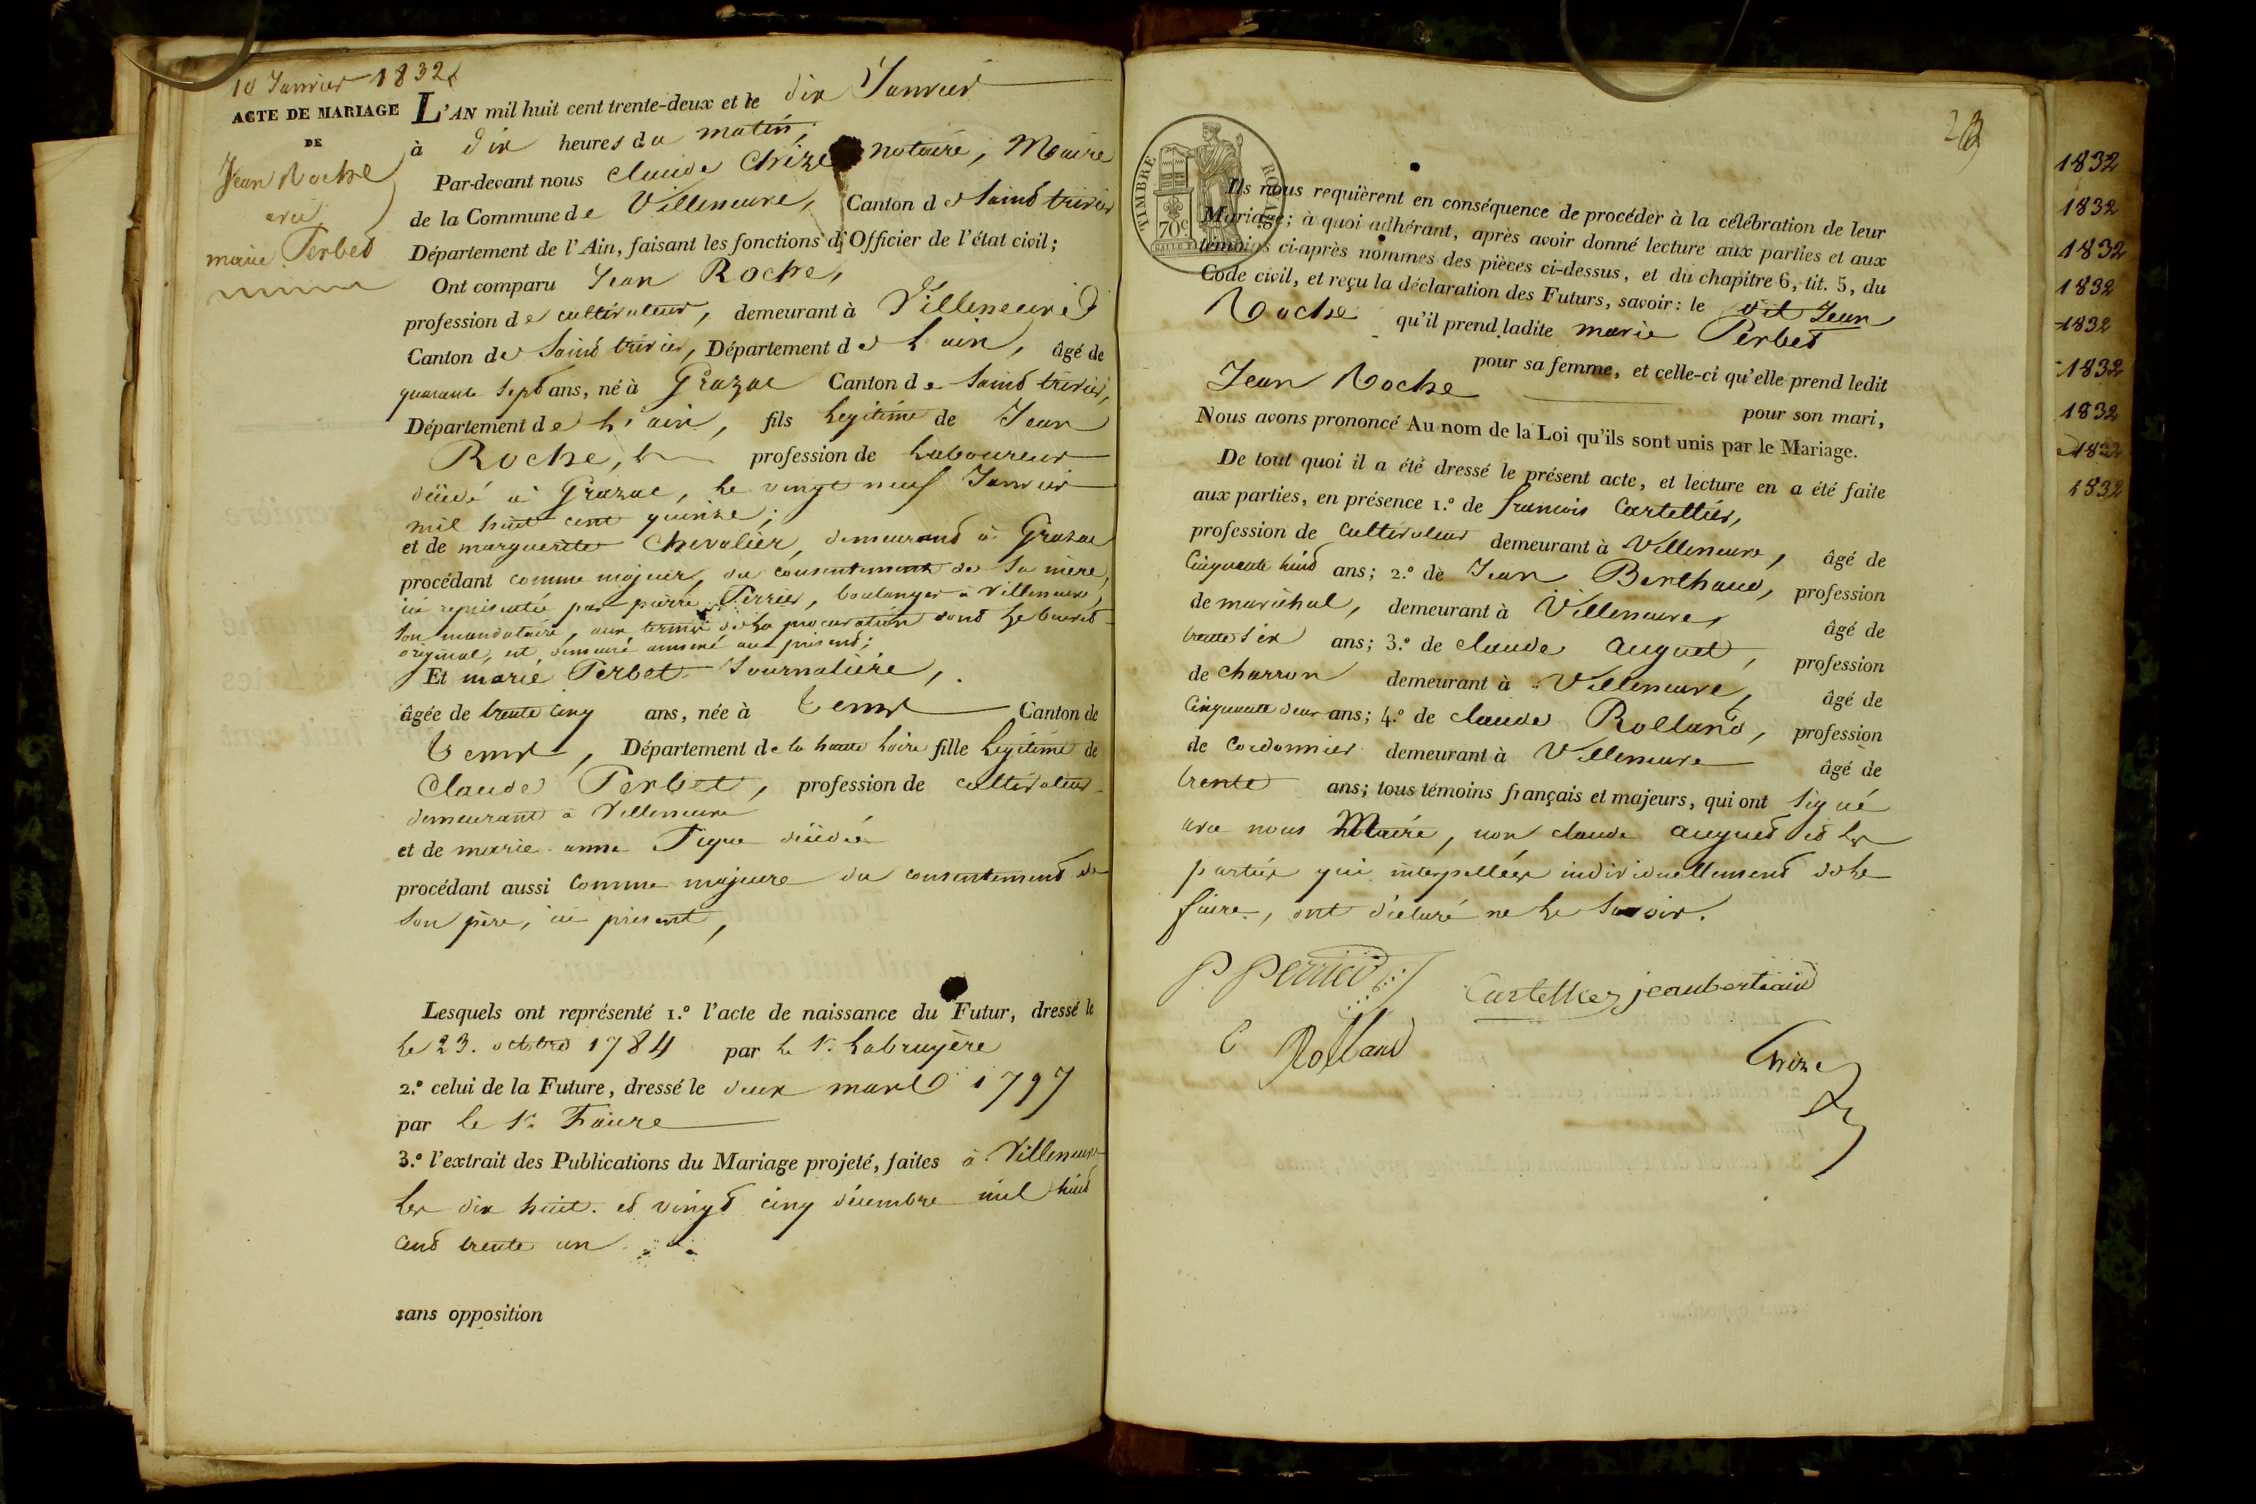 10 Janvier 1832
ACTE DE MARIAGE
DE
Jean Roche
avec
marie Perbet
L'AN mil huit cent trente-deux et le dix Janvier
à dix heures du matin,
Par-devant nous claude Chize notaire, Maire
de la Commune de Villeneuve, Canton de Saint trivier
Département de l'Ain, faisant les fonctions d'Officier de l'état civil;
Ont comparu Jean Roche,
profession de cultivateur, demeurant à Villeneuve
Canton de Saint trivier, Département de L'ain, âgé de
quarante Sept ans, né à Grazac Canton de Saint trivier,
Département de L'ain, fils Legitime de Jean
Roche, profession de Laboureur
décédé à Grazac, le vingt neuf Janvier
mil huit cent quinze;
et de marguerite Chevalier, demeurant à Grazac
procédant comme majeur, du consentement de Sa mère,
ici représentée par pierre Perrier, boulanger à Villeneuve,
Son mandataire, aux termes de La procuration dont Le brevet
original, est demeuré annexé au présent;
Et marie Perbet Journalière,
âgée de trente cinq ans, née à tence Canton de
tence, Département de la haute Loire fille Legitime de
Claude Perbet, profession de cultivateur
demeurant à Villeneuve
et de marie anne décédée
procédant aussi Comme majeure du consentement de
Son père, ici présent,
Lesquels ont représenté 1.º l'acte de naissance du Futur, dressé le
Le 23. octobre 1784 par Le Sr. Labruyère
2.º celui de la Future, dressé le deux mars 1797
par Le Sr. Faure
3.º l'extrait des Publications du Mariage projeté, faites à Villeneuve
Les dix huit et vingt cinq décembre mil huit
cent trente un
sans opposition
TIMBRE ROYAL
70c
Ils nous requièrent en conséquence de procéder à la célébration de leur
Mariage; à quoi adhérant, après avoir donné lecture aux parties et aux
témoins ci-après nommés des pièces ci-dessus, et du chapitre 6, tit. 5, du
Code civil, et reçu la déclaration des Futurs, savoir: le dit Jean
Roche qu'il prend ladite marie Perbet
pour sa femme, et celle-ci qu'elle prend ledit
Jean Roche pour son mari,
Nous avons prononcé Au nom de la Loi qu'ils sont unis par le Mariage.
De tout quoi il a été dressé le présent acte, et lecture en a été faite
aux parties, en présence 1.º de francois Cartellier,
profession de Cultivateur demeurant à Villeneuve, âgé de
Cinquante huit ans; 2.º de Jean Berthaud, profession
de maréchal, demeurant à Villeneuve, âgé de
trente Six ans; 3.º de claude auguet, profession
de charron demeurant à Villeneuve, âgé de
Cinquante deux ans; 4.º de claude Rolland, profession
de Cordonnier demeurant à Villeneuve âgé de
trente ans; tous témoins français et majeurs, qui ont Signé
avec nous Maire, non claude auguet et Les
parties qui interpellées individuellement de Le
faire, ont déclaré ne Le Savoir.
P. Perrier
Cartellier jeanbertaud
C Rolland
Chize
1832
1832
1832
1832
1832
1832
1832
1832
1832